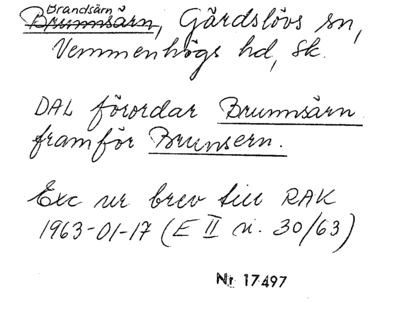 Brandsärn
Brunnsärn, Gärdslövs sn,
Vemmenhögs hd, Sk.
DAL förordar Brunnsärn
framför Brunsern.
Exc ur brev till RAK
1963-01-17 (E II n. 30/63)
Nr 17497